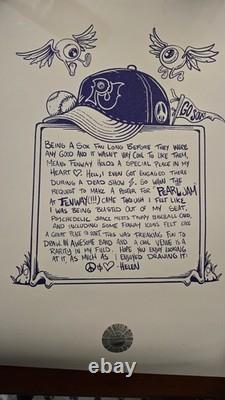 PJ
GO SOX
BEING A SOX FAN LONG BEFORE THEY WERE
ANY GOOD AND IT WASN'T VERY COOL TO LIKE THEM,
MEANS FENWAY HOLDS A SPECIAL PLACE IN MY
HEART ♡. HELL, I EVEN GOT ENGAGED THERE
DURING A DEAD SHOW. SO WHEN THE
REQUEST TO MAKE A POSTER FOR PEARL JAM
AT FENWAY(!!!) CAME THROUGH I FELT LIKE
I WAS BEING BLASTED OUT OF MY SEAT.
PSYCHEDELIC SPACE MEETS TRIPPY BASEBALL CARD,
AND INCLUDING SOME FENWAY ICONS FELT LIKE
A GREAT PLACE TO START. THIS WAS FREAKING FUN TO
DRAW. AN AWESOME BAND AND A COOL VENUE IS A
RARITY IN MY FIELD. HOPE YOU ENJOY LOOKING
AT IT, AS MUCH AS I ENJOYED DRAWING IT.
☮ & ♡ - HELEN
ebay